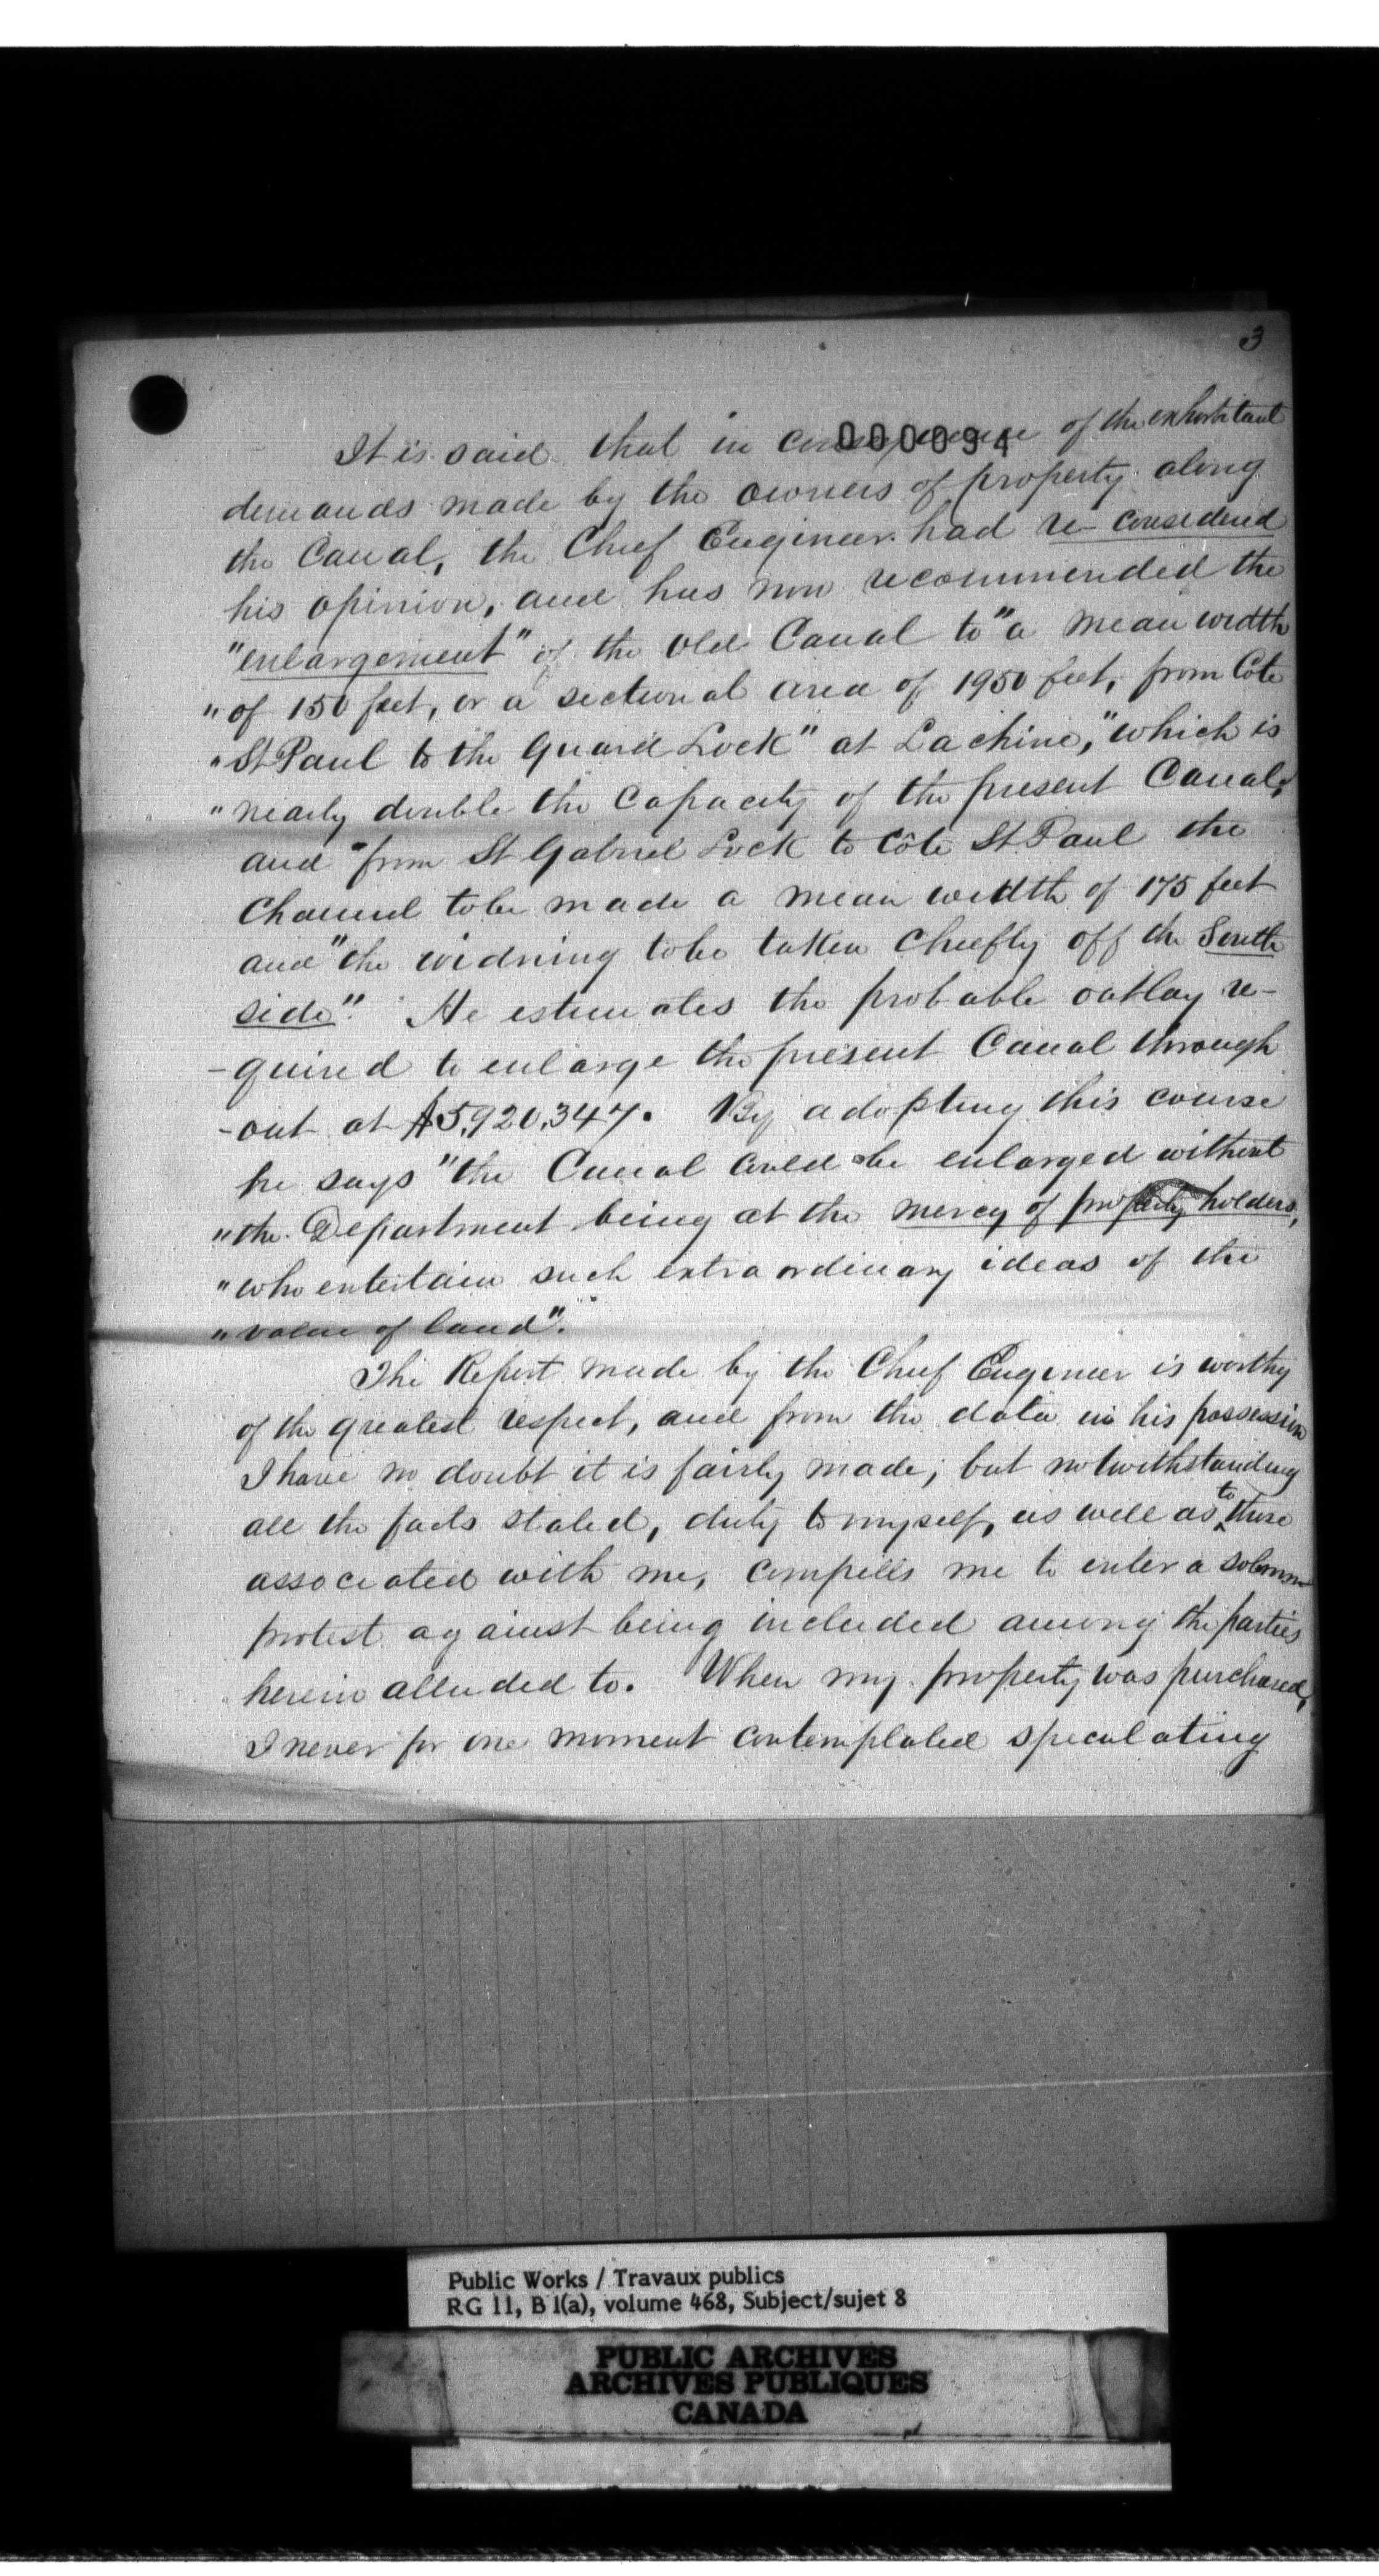 3
000094
It is said that in consequence of the exhorbitant
demands made by the owners of property along
the Canal, the Chief Engineer had re-considered
his opinion, and has now recommended the
"enlargement" of the old Canal to "a mean width
" of 150 feet, or a sectional area of 1950 feet, from Cote
" St Paul to the Guard Lock" at Lachine, "which is
" nearly double the capacity of the present Canal,"
and "from St Gabriel Lock to Côte St. Paul the
Channel to be made a mean width of 175 feet
and "the widning to be taken chiefly off the South
side". He estimates the probable outlay re-
-quired to enlarge the present Canal through
-out at $5,920,347. By adopting this course
he says "the Canal could be enlarged without
" the Department being at the mercy of property holders,
" who entertain such extraordinary ideas of the
" value of land".
The Report made by the Chief Engineer is worthy
of the greatest respect, and from the data in his possession
I have no doubt it is fairly made; but notwithstanding
all the facts stated, duty to myself, as well as to those
associated with me, compells me to enter a solemn
protest against being included among the parties
herein alluded to. When my property was purchased,
I never for one moment contemplated speculating
Public Works / Travaux publics
RG 11, B 1(a), volume 468, Subject/sujet 8
PUBLIC ARCHIVES
ARCHIVES PUBLIQUES
CANADA